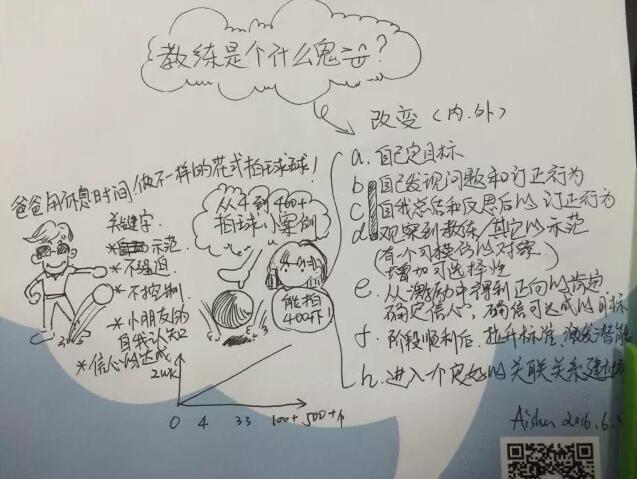 教练是个什么鬼?
改变(内.外)
a. 自己定目标
b 自己发现问题和订正行为
c 自我总结和反思后的订正行为
d 观察到教练/其它的示范
(有个可模仿的对象
增加可选择性
e. 从激励中得到正向的肯定,
确定信心,确信可达成的目标
f. 阶段顺利后,拉升标准,激发潜能
h. 进入一个良好的关联关系建
爸爸用休息时间,做不一样的花式拍球球!
关键字
* 示范
* 不强迫
* 不控制
* 小朋友的
自我认知
* 信心的达成
从4到400+
拍球小案例
能拍
400个!
2wk
0 4 33 100+ 500+个
Aishen 2016.6.